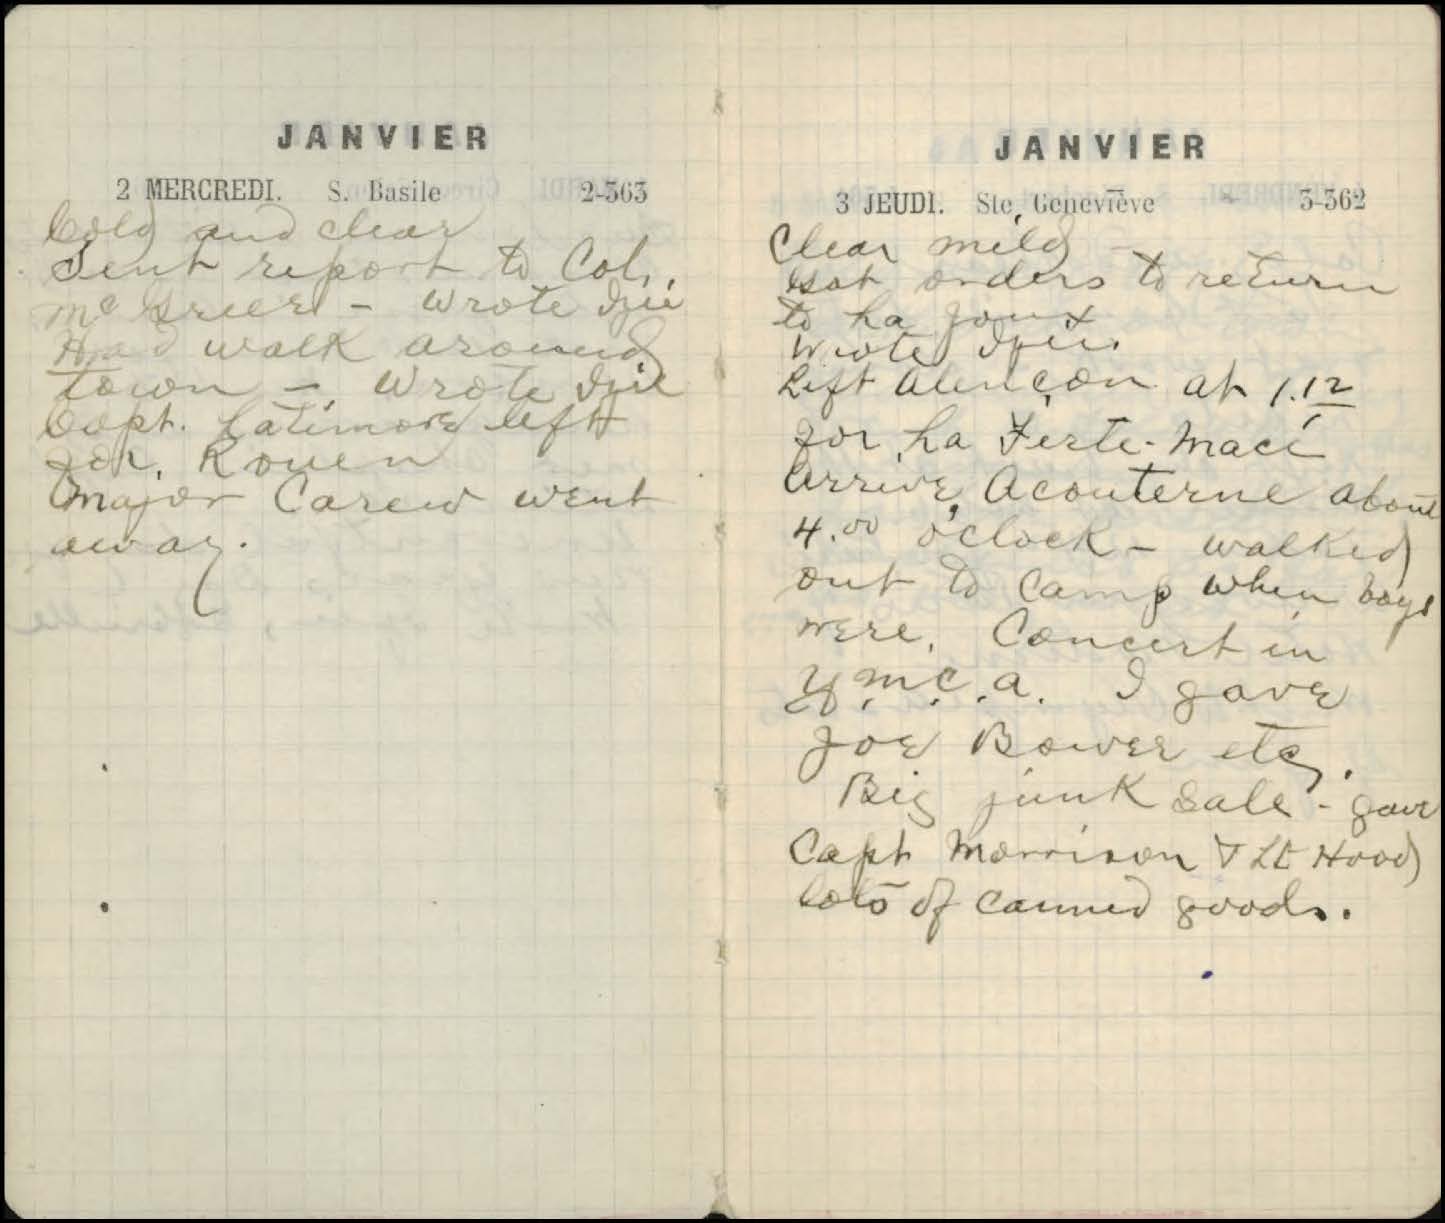 JANVIER
2 MERCREDI. S. Basile 2-363
Cold and clear
Sent report to Col.
Mc Greer - wrote Izie
Had walk around
town - Wrote Izie
Capt. Latimore left
for Rouen
Major Carew went
away.
JANVIER
3 JEUDI. Ste Geneviève 3-362
Clear mild
Got orders to return
to La Joux
Wrote Izie.
Left Alençon at 1.12
for La Ferte-Maci
Arrive Acouterne about
4.00 o'clock - walked
out to camp when boys
were. Concert in
Y.M.C.A. I gave
Joe Bower etc.
Big junk sale - gave
Capt Morrison & Lt Hood
lots of canned goods.